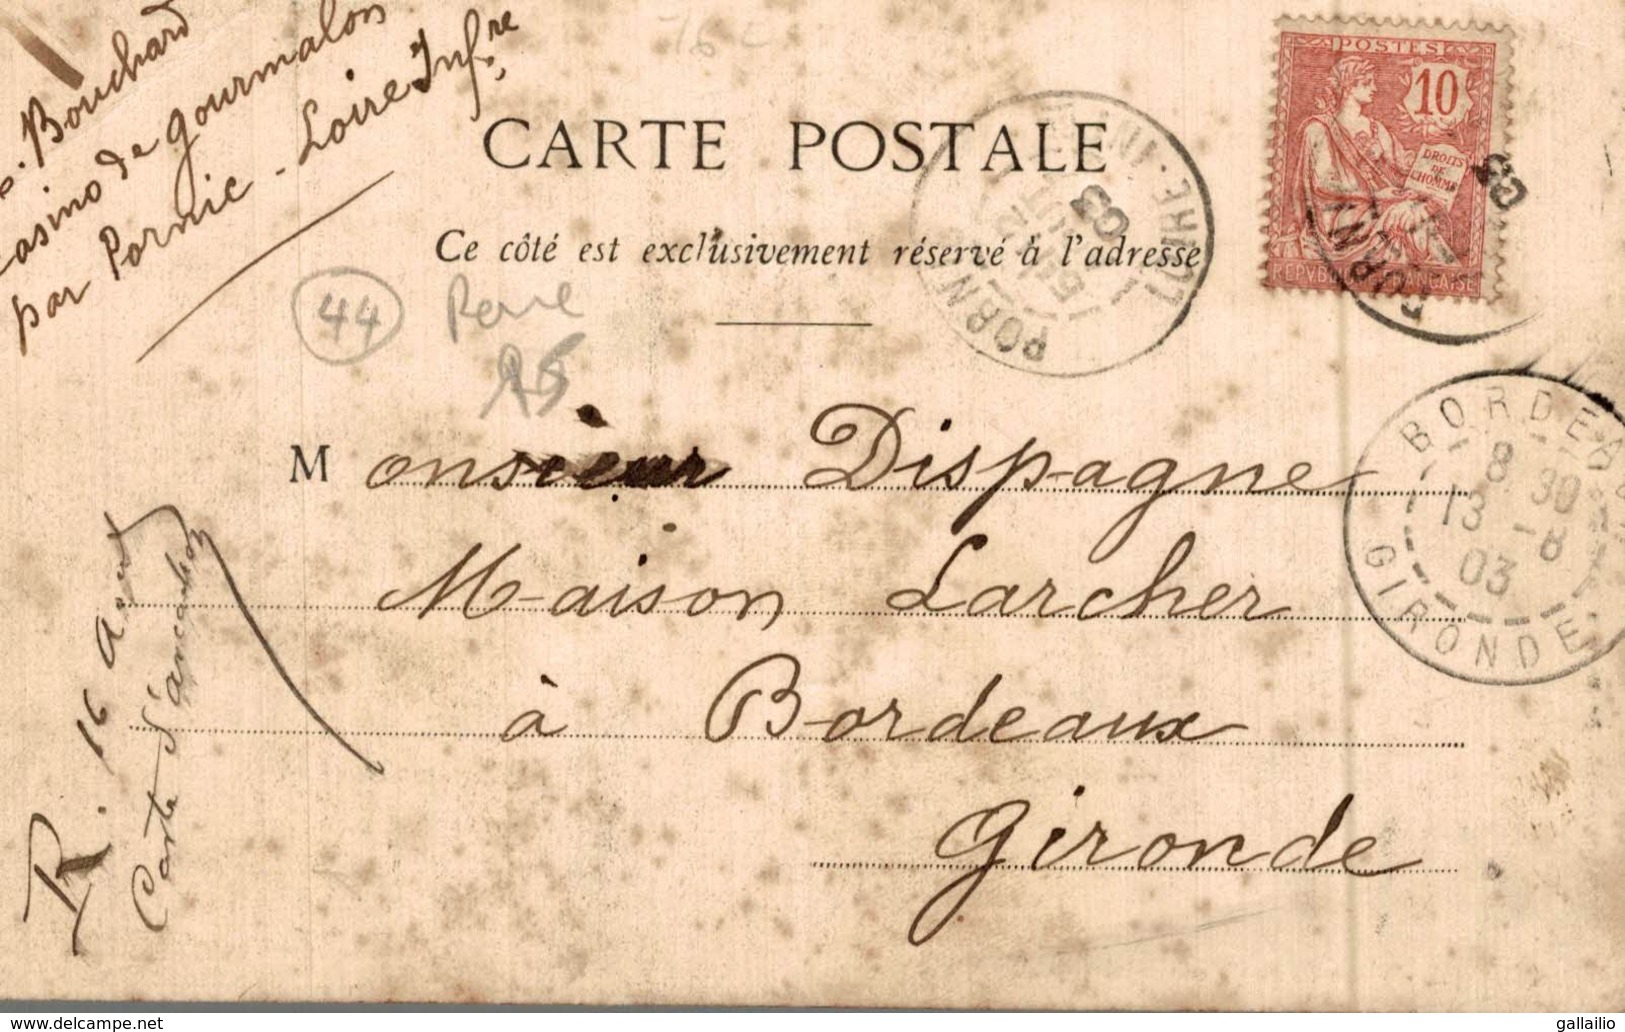 Bouchard
Casino de gourmalon
par Pornic - Loire Infre
CARTE POSTALE
Ce côté est exclusivement réservé à l'adresse
POSTES
10
DROITS
DE
L'HOMME
REPVBLIQUE FRANÇAISE
PORNIC
LOIRE-INF
03
03
44
BORDEAUX
8 30
13 -8
03
GIRONDE
Monsieur Dispagne
Maison Larcher
à Bordeaux
Gironde
R. 16 Aout
Carte
delcampe.net
gallailio